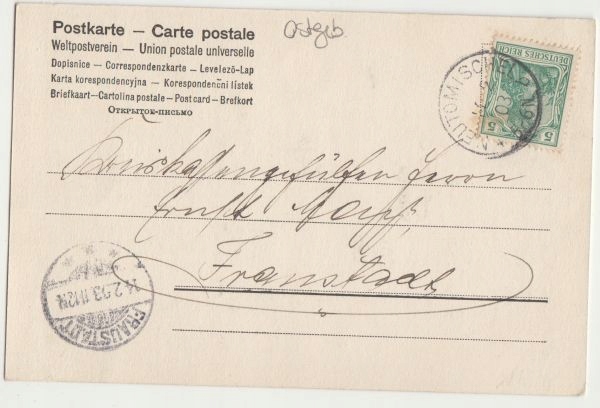 Postkarte – Carte postale
Weltpostverein – Union postale universelle
Dopisnice – Correspondenzkarte – Levelező-Lap
Karta korespondencyjna – Korespondenční lístek
Briefkaart – Cartolina postale – Post card – Brefkort
Открытое-письмо
Ostgeb.
DEUTSCHES REICH
5 5
NEUTOMISCHEL
03
Kreiskassengehülfen Herrn
Ernst
Fraustadt
FRAUSTADT
14.2.03.11-12V.